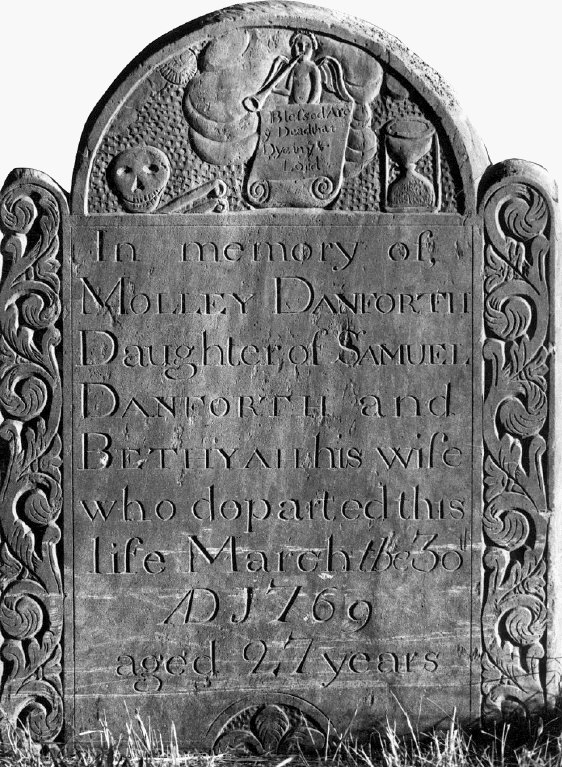 Blessed Are
y Deadthat
Dye in ye
Lord
In memory of,
MOLLEY DANFORTH
Daughter, of SAMUEL
DANFORTH and
BETHYAH his wife
who doparted this
life March the 30th
AD 1769
aged 27 years